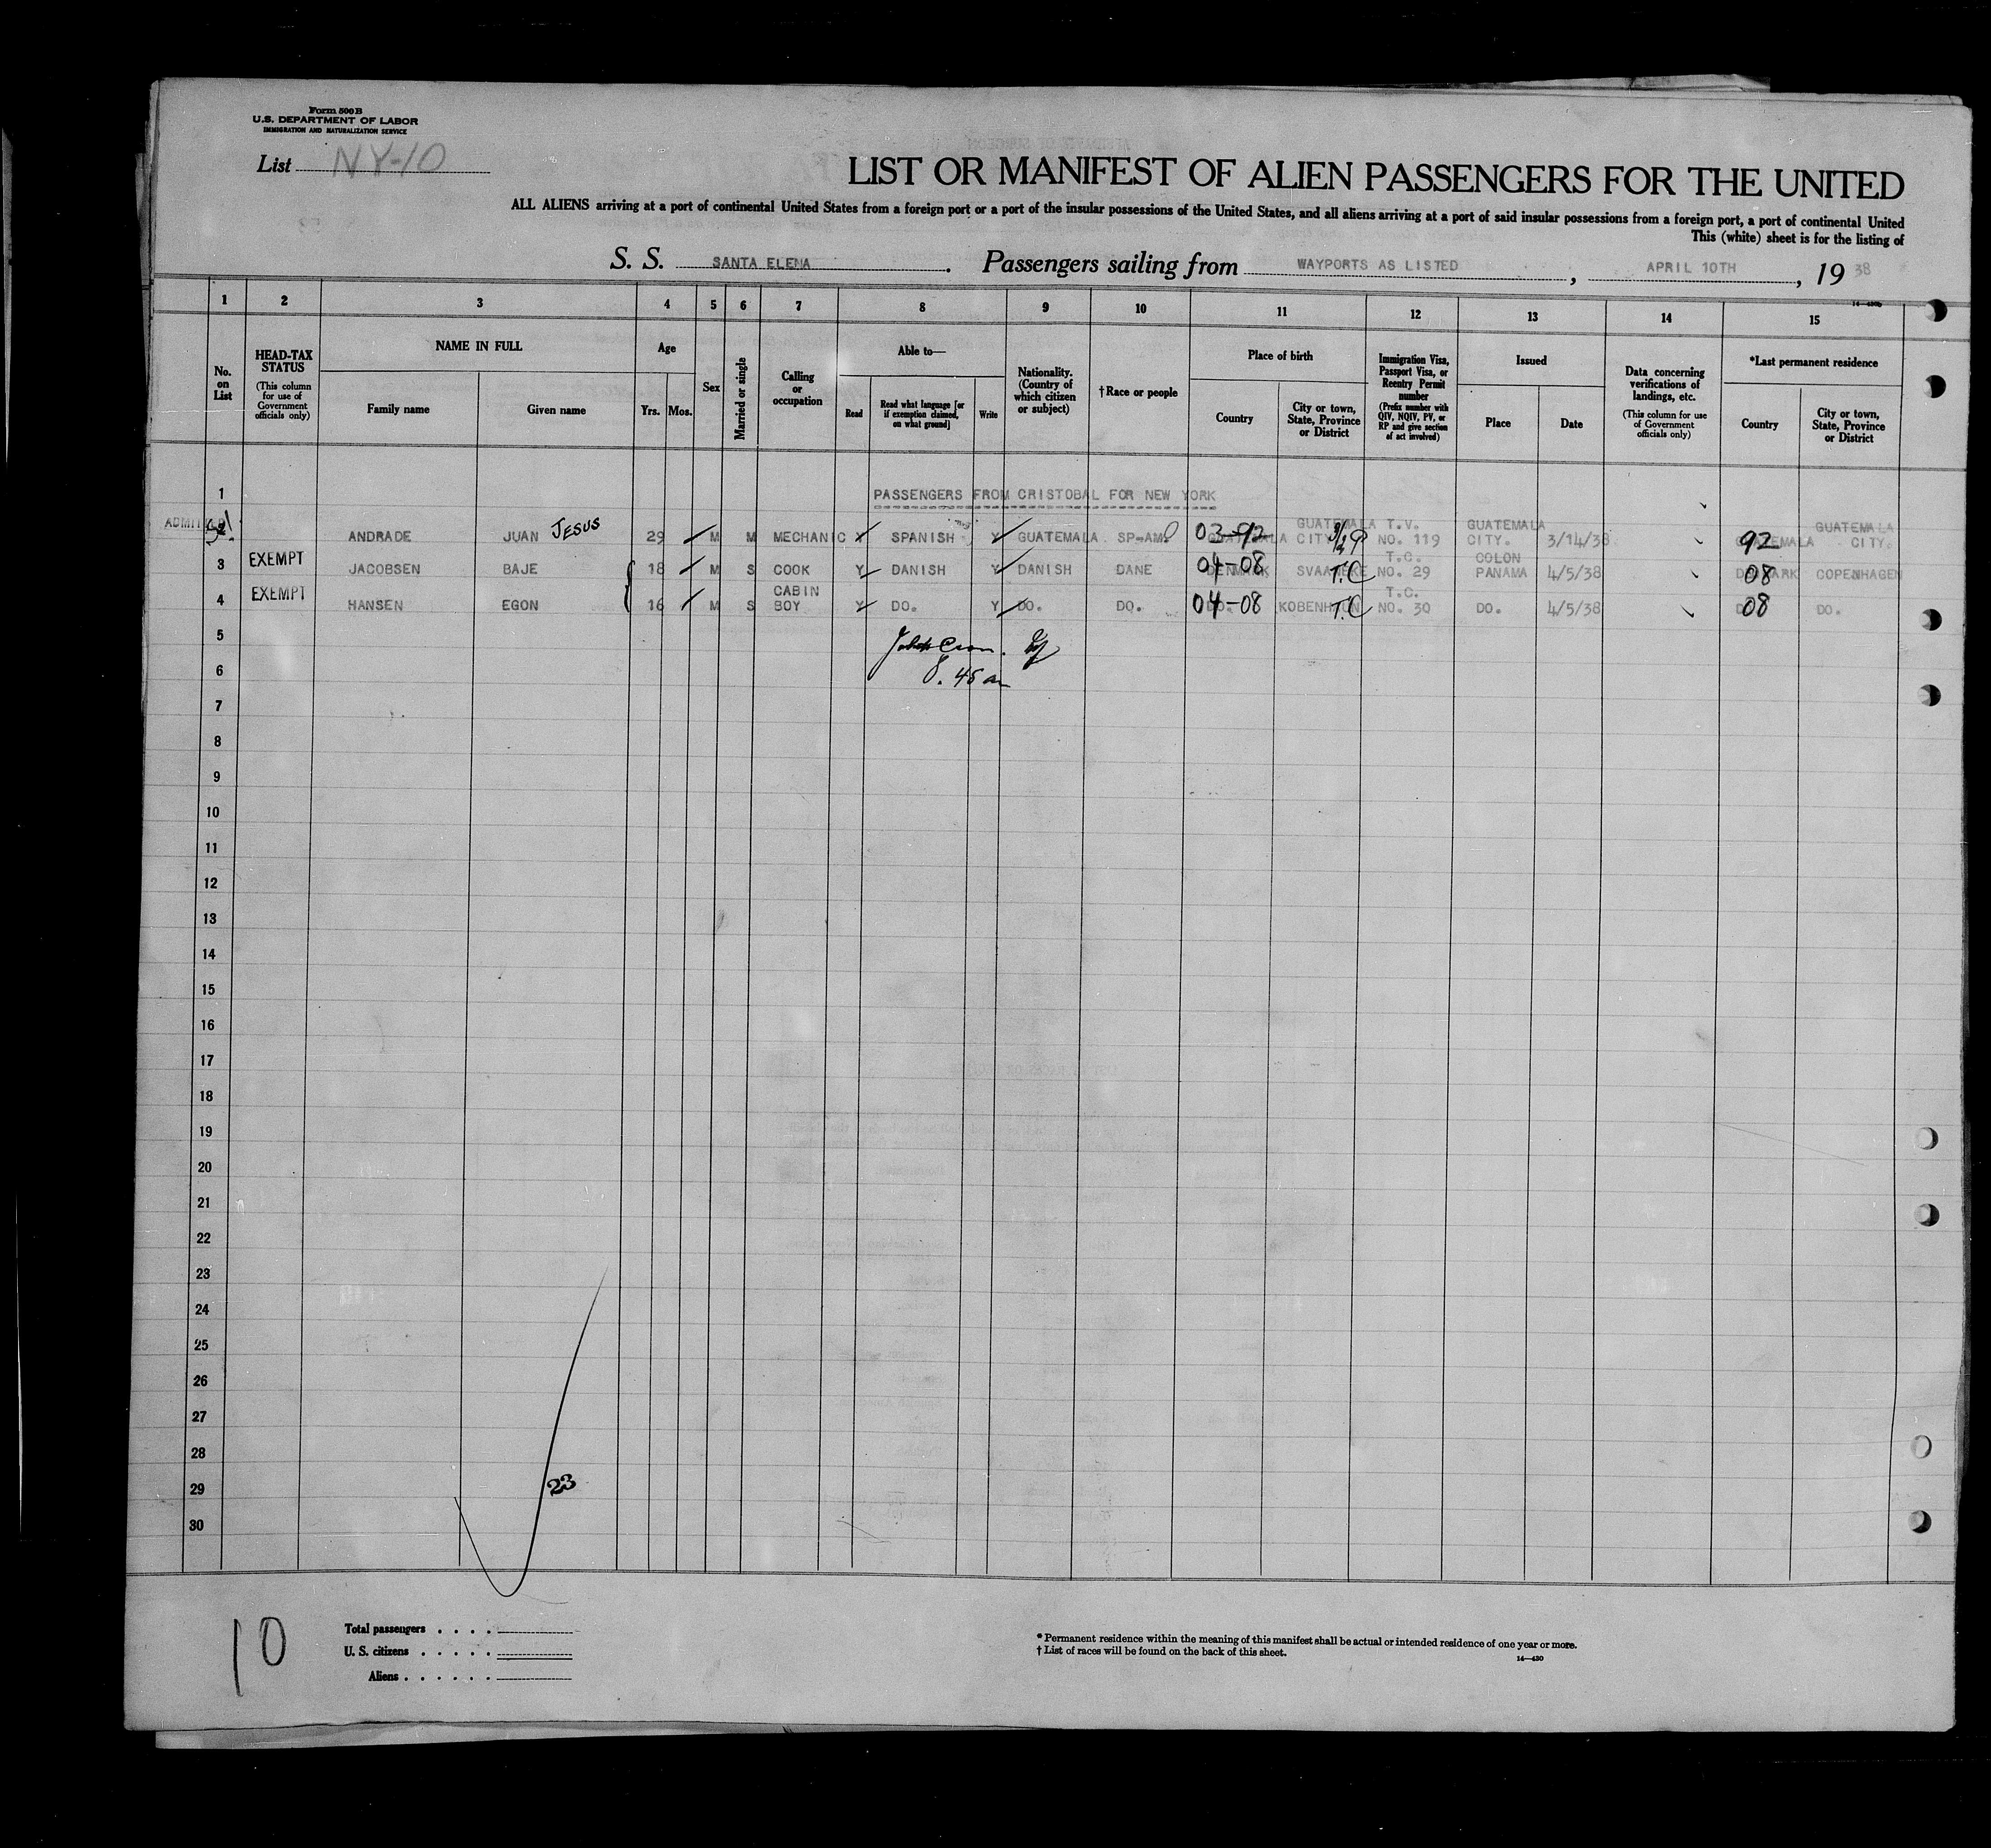 Form 500 B
U.S. DEPARTMENT OF LABOR
IMMIGRATION AND NATURALIZATION SERVICE
List NY-10
LIST OR MANIFEST OF ALIEN PASSENGERS FOR THE UNITED
ALL ALIENS arriving at a port of continental United States from a foreign port or a port of the insular possessions of the United States, and all aliens arriving at a port of said insular possessions from a foreign port, a port of continental United
This (white) sheet is for the listing of
S. S. SANTA ELENA. Passengers sailing from WAYPORTS AS LISTED, APRIL 10TH, 1938
1 2 3 4 5 6 7 8 9 10 11 12 13 14 15
No. on List
HEAD-TAX STATUS
(This column for use of Government officials only)
NAME IN FULL
Family name Given name
Age
Yrs. Mos.
Sex
Married or single
Calling or occupation
Able to—
Read
Read what language [or if exemption claimed, on what ground]
Write
Nationality. (Country of which citizen or subject)
†Race or people
Place of birth
Country
City or town, State, Province or District
Immigration Visa, Passport Visa, or Reentry Permit number
(Prefix number with QIV, NQIV, PV, or RP and give section of act involved)
Issued
Place Date
Data concerning verifications of landings, etc.
(This column for use of Government officials only)
*Last permanent residence
Country
City or town, State, Province or District
1 PASSENGERS FROM CRISTOBAL FOR NEW YORK
GUATEMALA T.V. GUATEMALA GUATEMALA
ANDRADE JUAN JESUS 29 M M MECHANIC SPANISH Y GUATEMALA SP-AM. 03-92 GUATEMALA CITY NO. 119 CITY. 3/14/38 92 GUATEMALA CITY.
T.C. COLON
3 EXEMPT JACOBSEN BAJE 18 M S COOK Y DANISH Y DANISH DANE 04-08 DENMARK SVAANEKE T.C NO. 29 PANAMA 4/5/38 08 DENMARK COPENHAGEN
CABIN T.C.
4 EXEMPT HANSEN EGON 16 M S BOY Y DO. Y DO. DO. 04-08 DO. KOBENHAVN T.C NO. 30 DO. 4/5/38 08 DO. DO.
5
6 8.45 am
7
8
9
10
11
12
13
14
15
16
17
18
19
20
21
22
23
24
25
26
27
28
29 23
30
10
Total passengers . . . .
U. S. citizens . . . . .
Aliens . . . . . .
* Permanent residence within the meaning of this manifest shall be actual or intended residence of one year or more.
† List of races will be found on the back of this sheet.
14—430